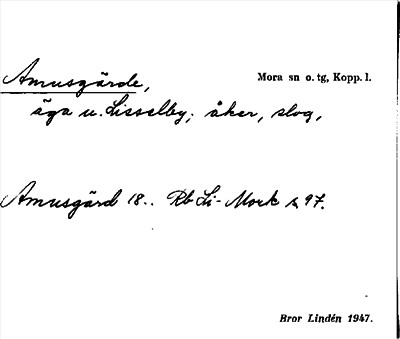 Amusgärde, Mora sn o. tg, Kopp. l.
äga u. Lisselby; åker, slog,
Amusgärd 18.. Rb Li- Mork s 97.
Bror Lindén 1947.